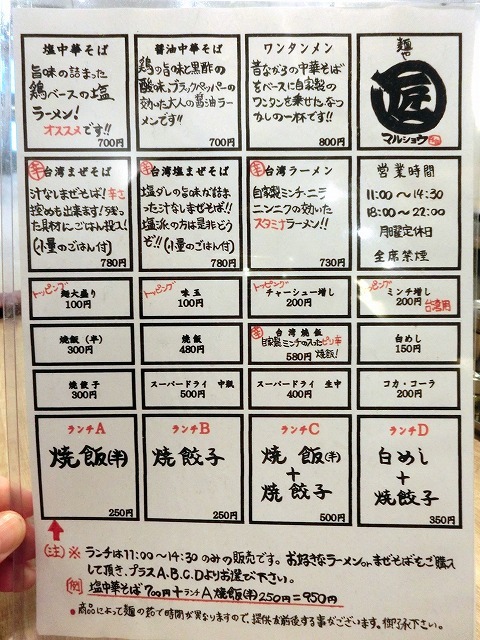 塩中華そば
旨味の詰まった
鶏ベースの塩
ラーメン!
オススメです!!
700円
醤油中華そば
鶏の旨味と黒酢の
酸味、ブラックペッパーの
効いた大人の醤油ラー
メンです!!
700円
ワンタンメン
昔ながらの中華そば
をベースに自家製の
ワンタンを乗せた、なつ
かしの一杯です!!
800円
麺や
匠
マルショウ
辛 台湾まぜそば
汁なしまぜそば!辛さ
控えめも出来ます!残っ
た具材にごはん投入!
(小量のごはん付)
780円
辛 台湾塩まぜそば
塩ダレの旨味が詰まっ
た汁なしまぜそば!!
塩派の方は是非どう
ぞ!!(小量のごはん付)
780円
辛 台湾ラーメン
自家製ミンチ・ニラ
ニンニクの効いた
スタミナラーメン!!
730円
営業時間
11:00〜14:30
18:00〜22:00
月曜定休日
全席禁煙
トッピング
麺大盛り
100円
トッピング
味玉
100円
トッピング
チャーシュー増し
200円
トッピング
ミンチ増し
200円 台湾用
焼飯(半)
300円
焼飯
480円
辛 台湾焼飯
自家製ミンチの入ったピリ辛
580円 焼飯!
白めし
150円
焼餃子
300円
スーパードライ 中瓶
500円
スーパードライ 生中
400円
コカ・コーラ
200円
ランチA
焼飯(半)
250円
ランチB
焼餃子
250円
ランチC
焼飯(半)
+
焼餃子
500円
ランチD
白めし
+
焼餃子
350円
(注)※ ランチは11:00〜14:30のみの販売です。お好きなラーメンorまぜそばをご購入
して頂き、プラスA.B.C.Dよりお選び下さい。
(例) 塩中華そば700円+ランチA焼飯(半)250円=950円
●商品によって麺の茹で時間が異なりますので、提供が前後する事がございます。御了承下さい。